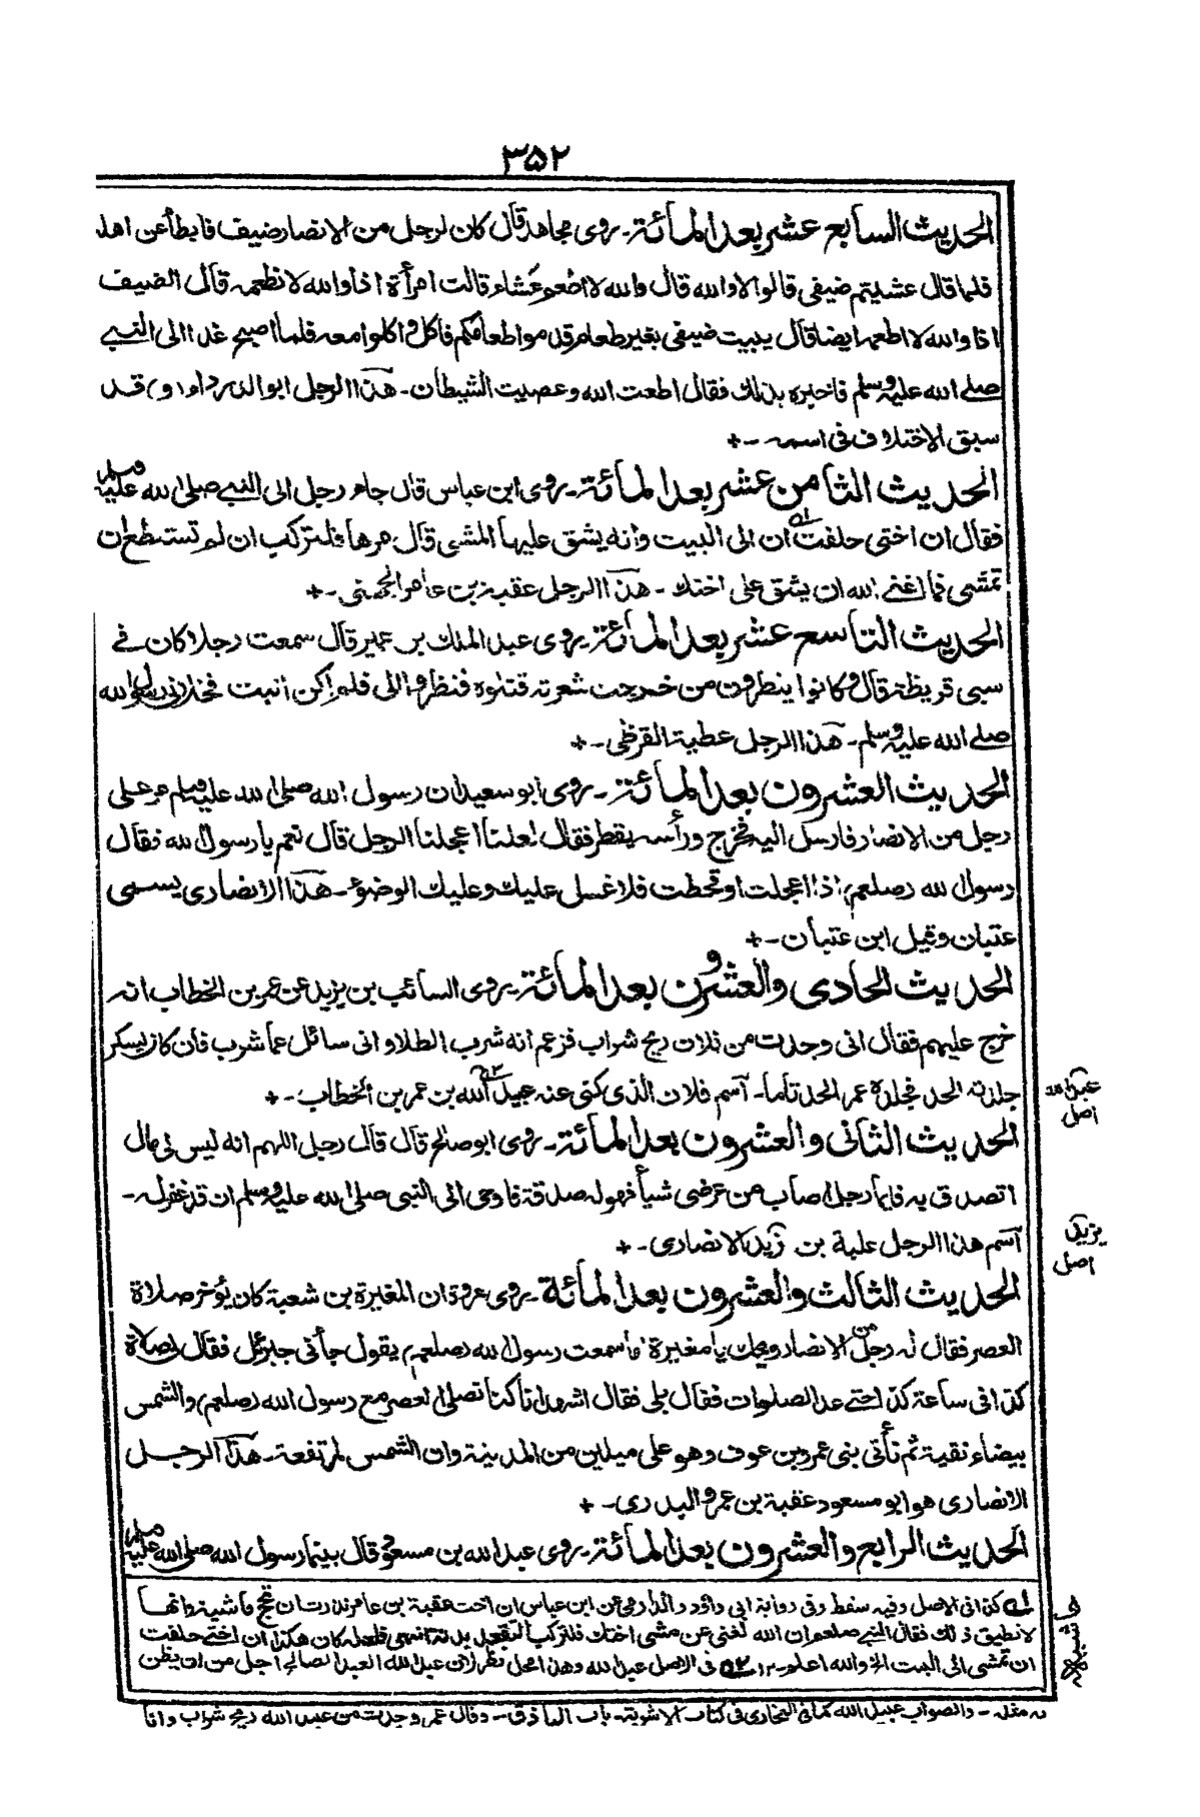 ٣٥٢
الحديث السابع عشر بعد المأئة- روى مجاهد قال كان لرجل من الانصار ضيف فابطأ عن اهله
فلما قال عشيتم ضيفى قالوا لا والله قال والله لا اطعم عشاء قالت امرأة اذا والله لا نطعمه قال الضيف
اذا والله لا اطعمه ايضا قال يبيت ضيفى بغير طعام قدموا طعامكم فاكل واكلوا معه فلما اصبح غدا الى النبى
صلے الله عليه وسلم فاخبره بذلك فقال اطعت الله وعصيت الشيطان- هذا الرجل ابو الدرداء او) قد
سبق الاختلاف فى اسمه -+
الحديث الثامن عشر بعد المأئة- روى ابن عباس قال جاء رجل الى النبے صلى الله عليه وسلم
فقال ان اختى حلفت ان الى البيت وانه يشق عليها المشى قال مرها فلتركب ان لم تستطع ان
تمشى فما اغنى الله ان يشق على اختك - هذا الرجل عقبة بن عامر الجهنى -+
الحديث التاسع عشر بعد المأئة- روى عبد الملك بن عمير قال سمعت رجلا وكان فے
سبى قريظة قال وكانوا ينظرون من خرجت شعرته قتلوه فنظروا الى فلم اكن انبت فخلانى رسول الله
صلے الله عليه وسلم- هذا الرجل عطية القرظى -+
الحديث العشرون بعد المأئة- روى ابو سعيد ان رسول الله صلى الله عليه وسلم مر على
رجل من الانصار فارسل اليه فخرج ورأسه يقطر فقال لعلنا اعجلنا الرجل قال نعم يا رسول الله فقال
رسول الله (صلعم) اذا اعجلت او قحطت فلا غسل عليك وعليك الوضوء- هذا الانصارى يسمى
عتبان وقيل ابن عتبان -+
الحديث الحادى والعشرون بعد المأئة- روى السائب بن يزيد عن عمر بن الخطاب انه
خرج عليهم فقال انى وجدت من فلان ريح شراب فزعم انه شرب الطلاء وانى سائل عما شرب فان كان يسكر
جلدته الحد فجلده عمر الحد تاما- اسم فلان الذى كنى عنه عبيد الله بن عمر بن الخطاب -+
عبد الله
اصل
الحديث الثانى والعشرون بعد المأئة- روى ابو صالح قال قال رجل اللهم انه ليس لى مال
اتصدق به فايما رجل اصاب من عرضى شيأ فهو له صدقة فاوحى الى النبى صلى الله عليه وسلم ان قد غفر له-
اسم هذا الرجل علبة بن زيد الانصارى -+
يزيد
اصل
الحديث الثالث والعشرون بعد المأئة- روى عروة ان المغيرة بن شعبة كان يؤخر صلاة
العصر فقال له رجل من الانصار ويحك يا مغيرة اما سمعت رسول الله (صلعم) يقول جأنى جبرئل فقال لى صلاة
كذا فى ساعة كذا حتى عد الصلوات فقال بلى فقال اشهد انا كنا نصلى العصر مع رسول الله (صلعم) والشمس
بيضاء نقية ثم نأتى بنى عمرو بن عوف وهو على ميلين من المدينة وان الشمس لمرتفعة- هذا الرجل
الانصارى هو ابو مسعود عقبة بن عمرو البدرى -+
الحديث الرابع والعشرون بعد المأئة- روى عبد الله بن مسعود قال بينما رسول الله صلى الله عليه وسلم
١ كذا فى الاصل وفيه سقط وفى رواية ابى داؤد والدارمى عن ابن عباس ان اخت عقبة بن عامر نذرت ان تحج ماشية وانها
لا تطيق ذلك فقال النبے صلعم ان الله لغنى عن مشى اختك فلتركب ولتهد بدنة انتهى فلعله كان هكذا ان اختى حلفت
ان تمشى الى البيت الخ والله اعلم- ١٢ ٢ فى الاصل عبد الله وهذا محل نظر لان عبد الله العبد الصالح اجل من ان يظن
به مثله - والصواب عبيد الله كما فى البخارى فى كتاب الاشربة- باب الباذق- وقال عمر وجدت من عبيد الله ريح شراب وانا